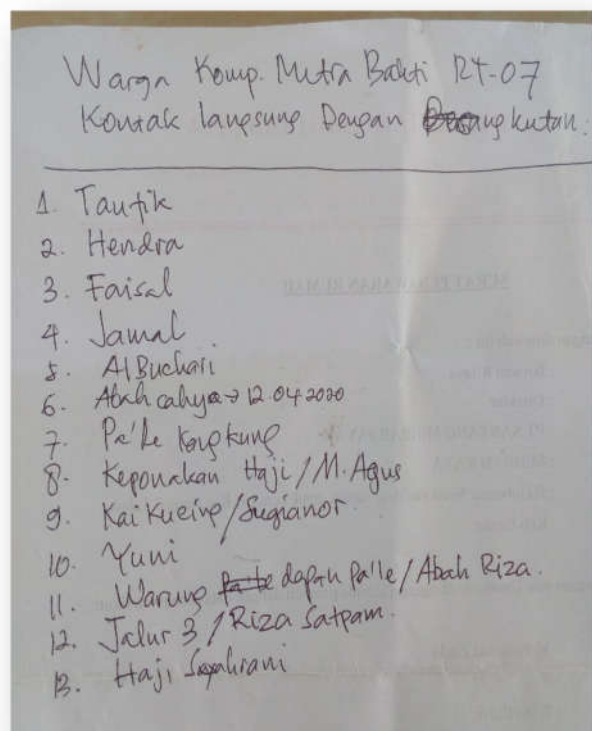 Warga Komp. Mitra Bakti RT-07
Kontak langsung Dengan angkutan:
1. Taufik
2. Hendra
3. Faisal
4. Jamal
5. Al Buchari
6. Abah cahya → 12.04.2020
7. Pa'le
8. Keponakan Haji / M. Agus
9. Kai / Sugianor
10. Yuni
11. Warung dapan Pa'le / Abah Riza.
12. Jalur 3 / Riza Satpam.
13. Haji